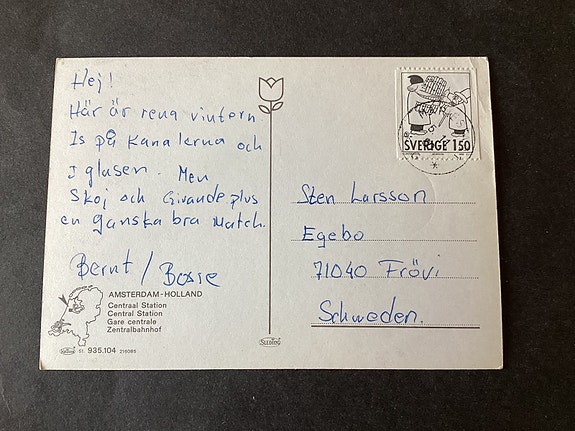 Hej!
Här är rena vintern
Is på Kanalerna och
I glasen. Men
Skoj och Givande plus
en ganska bra match.
Bernt / Bosse
AMSTERDAM-HOLLAND
Centraal Station
Central Station
Gare centrale
Zentralbahnhof
51. 935.104 216065
SVERIGE 150
Sten Larsson
Egebo
71040 Frövi
Schweden.